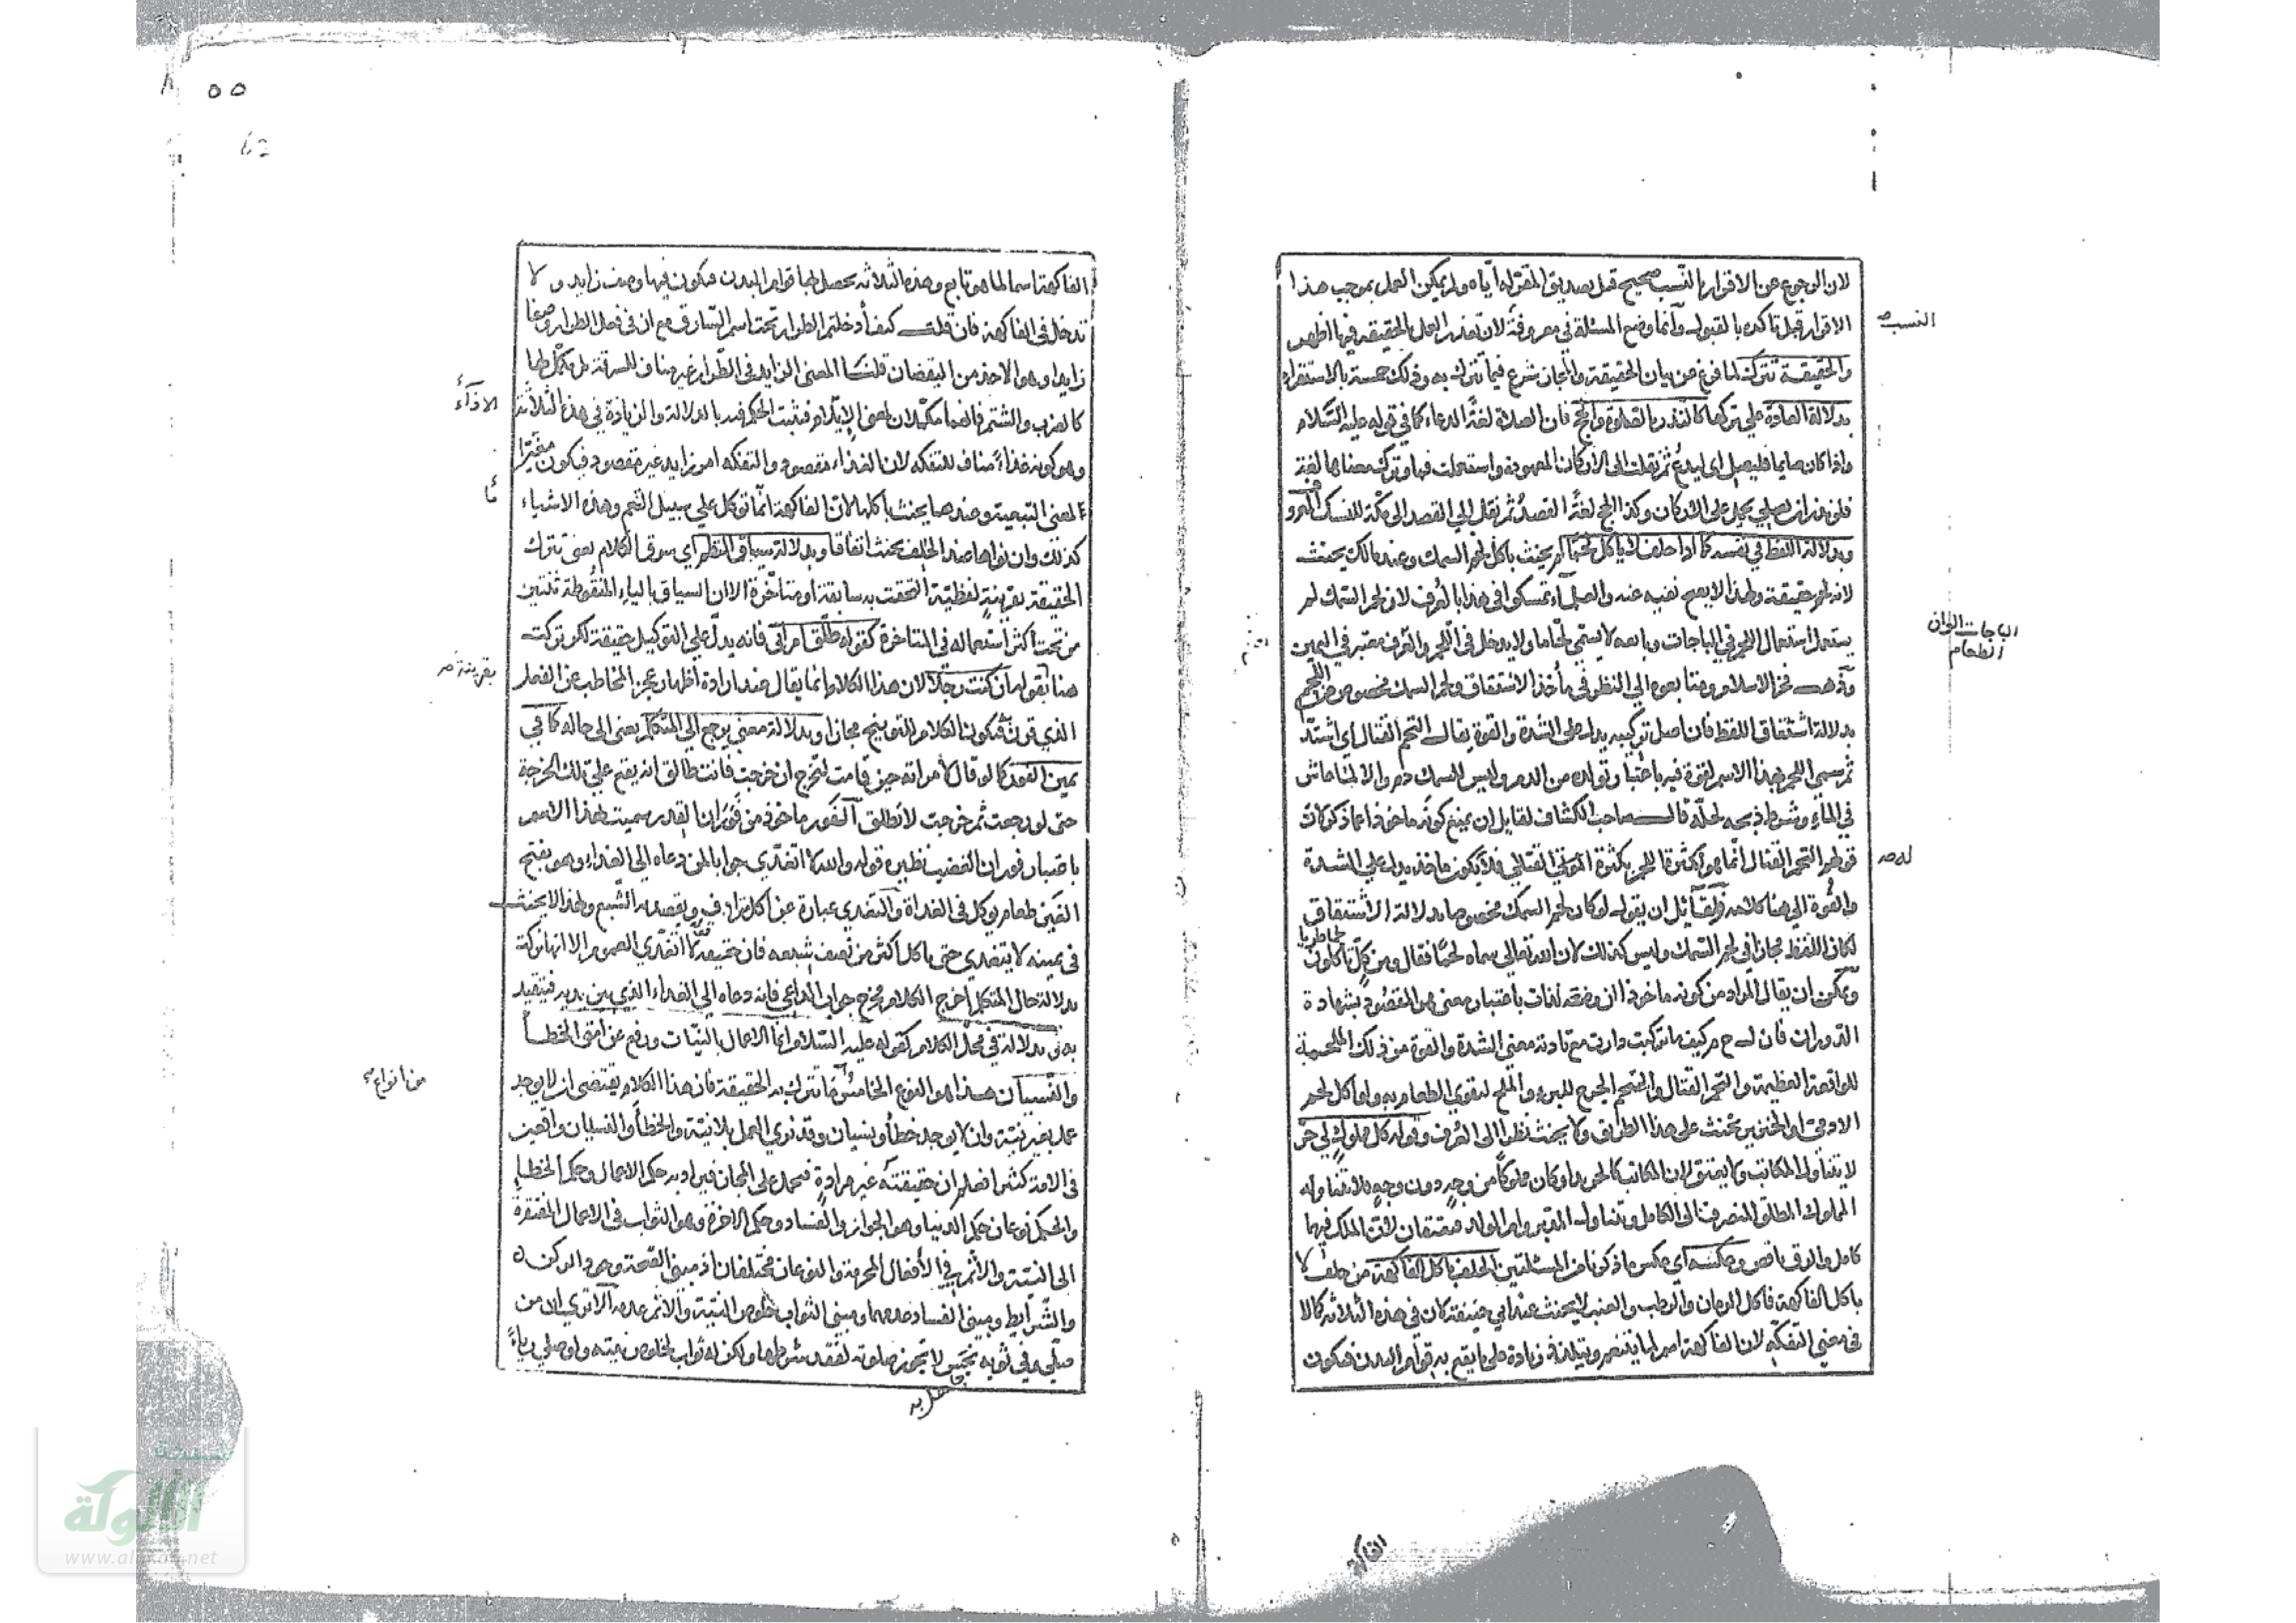 لان الرجوع عن الاقرار بالنسب صحيح قبل تصديق المقر له اياه ولم يمكن العمل بموجب هذا
الاقرار قبل تاكده بالقبول وانما وضع المسئلة في معروفة لان تعذر العمل بالحقيقة فيها اظهر
النسب صح
والحقيقة تترك لما فرغ عن بيان الحقيقة والمجاز شرع فيما تترك به وذلك خمسة بالاستقراء
بدلالة العادة على تركها كالنذر بالصلوة والحج فان الصلاة لغةً الدعاء كما في قوله عليه السلام
واذا كان صايما فليصل اي ليدع ثم نقلت الى الاركان المعهودة واستعملت فيها وترك معناها لغة
فلو نذر ان يصلي يحمل على الاركان وكذا الحج لغةً القصد ثم نقل الي القصد الى مكة للنسك
وبدلالة اللفظ في نفسه كما اذا حلف لا ياكل لحمًا لم يحنث باكل لحم السمك وعند مالك يحنث
لانه لحم حقيقة ولهذا لا يصح نفيه عنه والعلماء تمسكوا في هذا بالعرف لان لحم السمك لم
يستعمل استعمال اللحم في الباجات وبايعه لا يسمى لحاما ولا يدخل في اللحم والعرف معتبر في اليمين
الباجات الوان
الطعام
وذهب فخر الاسلام ومتابعوه الي النظر في مأخذ الاشتقاق ولحم السمك مخصوص من اللحم
بدلالة اشتقاق اللفظ فان اصل تركيبه يدل على الشدة والقوة يقال التحم القتال اي اشتد
ثم سمي اللحم بهذا الاسم لقوة فيه باعتبار تولده من الدم وليس للسمك دم والا لما عاش
في الماء وشرط ذبحه لحله قال صاحب الكشاف لقايل ان يمنع كونه ماخوذا مما ذكر كان
قولهم التحم القتال انما هو لكثرة اللحم بكثرة القتلى فلا يكون ماخذه يدل على الشدة
له صح
والقوة الي هنا كلامه ولقائل ان يقول لو كان لحم السمك مخصوصا بدلالة الاشتقاق
لكان اللفظ مجازا في لحم السمك وليس كذلك لان الله تعالى سماه لحمًا فقال ومن كلٍ تاكلون
لحما طريا
ويمكن ان يقال المراد من كونه ماخوذا ان وضعه لذات باعتبار معنى هو المقصود بشهادة
الدوران فان ل ح م كيف ما تركبت دارت مع تادية معنى الشدة والقوة من ذلك الملحمة
للواقعة العظيمة والتحم القتال والتحم الجرح للبرء والملح لتقوي الطعام به ولو اكل لحم
الادمي او الخنزير يحنث على هذا الطريق ولا يحنث نظرا الى العرف وقوله كل مملوك لي حر
لا يتناول المكاتب ولا يعتق لان المكاتب كالحر يدا وكان مملوكًا من وجه دون وجه فلا يتناوله
المملوك المطلق المنصرف الى الكامل ويتناول المدبر وام الولد فيعتقان لان الملك فيهما
كامل والرق ناقص وعكسه اي عكس ما ذكرنا من المسئلتين الحلف باكل الفاكهة من حلف لا
ياكل الفاكهة فاكل الرمان والرطب والعنب لا يحنث عند ابي حنيفة كان في هذه الثلاثة كمالا
في معنى التفكه لان الفاكهة اسم لما يتنعم ويتلذذ زيادة على ما يقع به قوام البدن فيكون
الفاكهة
٥٥
الفاكهة اسما لما هو تابع وهذه الثلاثة يحصل لها قوام البدن فيكون فيها وصف زايد ولا
تدخل في الفاكهة فان قلت كيف أدخلتم الطرار تحت اسم السارق مع ان في فعل الطرار وصفا
زايدا وهو الاخذ من اليقظان قلنا المعنى الزايد في الطرار غير مناف للسرقة بل مكمل لها
كالضرب والشتم فانهما مكملان لمعنى الايلام فيثبت الحكم فيه بالدلالة والزيادة في هذه الثلاثة
الاذاء
وهو كونه غذاءً مناف للتفكه لان الغذاء مقصود والتفكه امر زايد غير مقصود فيكون مغيرا
لمعنى التبعية وعندهما يحنث باكلها لان الفاكهة انما توكل على سبيل التنعم وهذه الاشياء
كذلك وان نواها عند الحلف يحنث اتفاقا وبدلالة سياق النظم اي سوق الكلام يعني تترك
الحقيقة بقرينةٍ لفظيةٍ التحقت به سابقة او متاخرة الا ان السياق بالياء المنقوطة ثنتين
من تحت اكثر استعماله في المتاخرة كقوله طلق امراتي فانه يدل على التوكيل حقيقة لكن تركت
هنا بقوله ان كنت رجلا لان هذا الكلام انما يقال عند ارادة اظهار عجز المخاطب عن الفعل
بقرينة صح
الذي قرن فيكون الكلام للتوبيخ مجازا وبدلالة معنى يرجع الي المتكلم يعني الى حاله كما في
يمين الفور كما لو قال لامراته حين قامت لتخرج ان خرجت فانت طالق انه يقع على تلك الخرجة
حتى لو رجعت ثم خرجت لا تطلق الفور ماخوذ من فَوَران القدر سميت بهذا الاسم
باعتبار فوران الغضب نظيره قوله والله لا اتغدي جوابا لمن دعاه الي الغداء وهو بفتح
الغين طعام يوكل في الغداة والتغدي عبارة عن اكل مترادف يقصد به الشبع ولهذا لا يحنث
في يمينه لا يتغدي حتى ياكل اكثر من نصف شبعه فان حقيقة لا اتغدي العموم الا انها تركت
بدلالة حال المتكلم اخرج الكلام مخرج جواب الداعي فانه دعاه الي الغداء الذي بين يديه فيتقيد
به وبدلالة في محل الكلام كقوله عليه السلام انما الاعمال بالنيات ورفع عن امتي الخطأ
والنسيان هذا هو النوع الخامس مما تترك به الحقيقة فان هذا الكلام يقتضي ان لا يوجد
من انواع
عمل بغير نية وان لا يوجد خطأ ونسيان وقد نري العمل بلا نية والخطأ والنسيان واقعين
في الامة كثيرا فعلم ان حقيقته غير مرادةٍ فيحمل على المجاز فيراد به حكم الاعمال وحكم الخطا
والحكم نوعان حكم الدنيا وهو الجواز والفساد وحكم الاخرة وهو الثواب في الاعمال المفتقرة
الى النية والاثم في الأفعال المحرمة والنوعان مختلفان اذ مبنى الصحة وجود الركن
والشرايط ومبنى الفساد عدمهما ومبنى الثواب خلوص النية والاثم عدمه الا تري ان من
صلى في ثوب نجس لا تجوز صلوته لفقد شرطها ولكن له ثواب لخلوص نيته ولو صلى رياءً
الألوكة
www.alukah.net